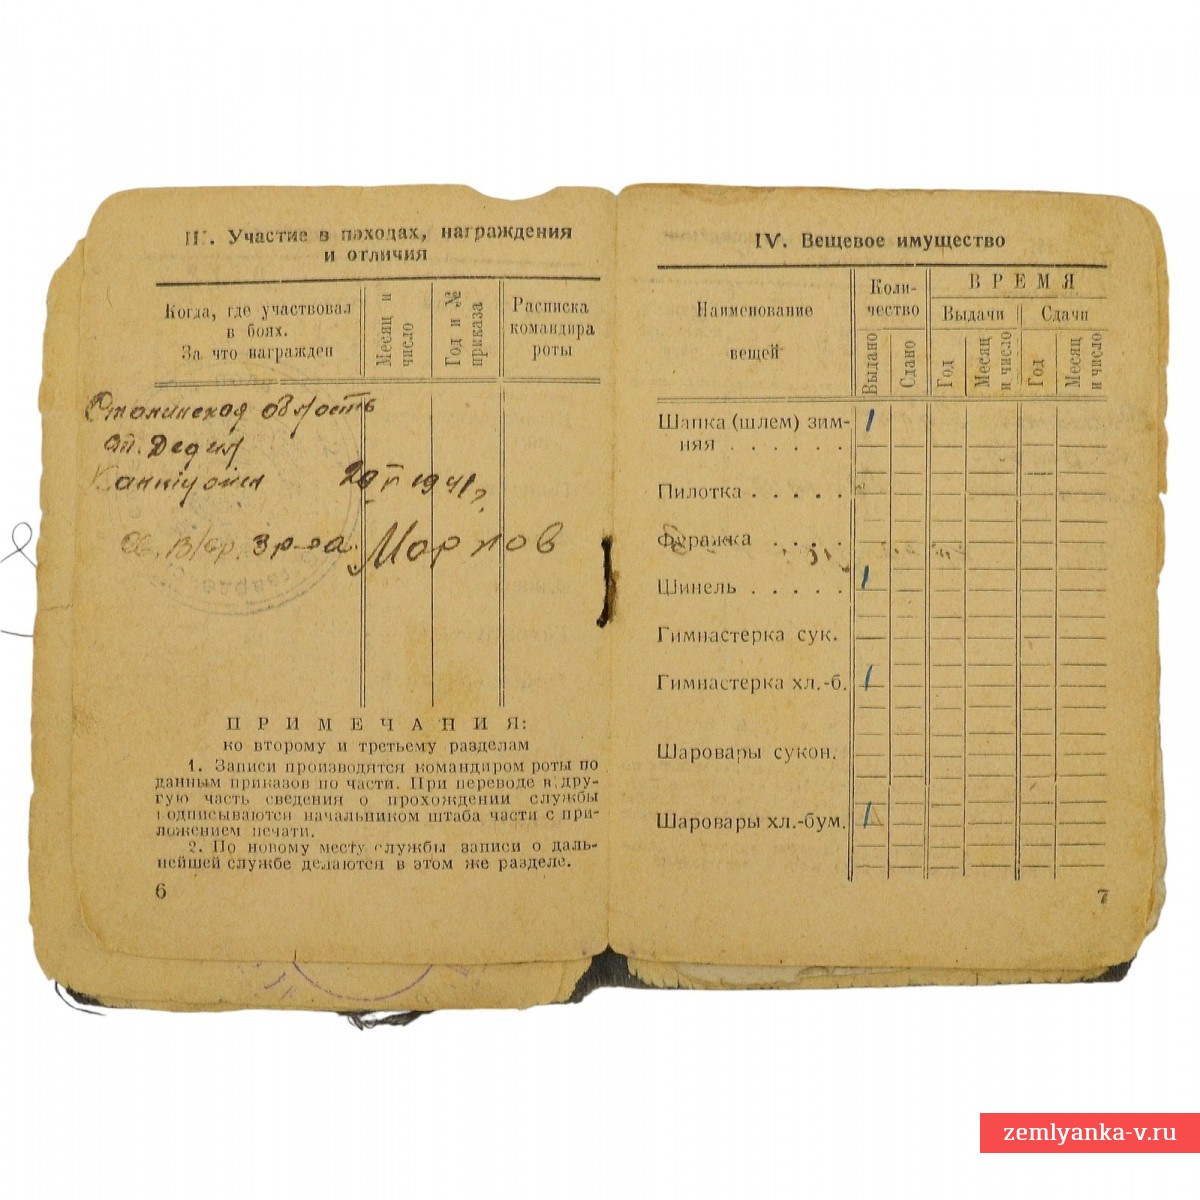 III. Участие в походах, награждения
и отличия
Когда, где участвовал
в боях.
За что награжден
Месяц и
число
Год и №
приказа
Расписка
командира
роты
область
1941г
Морнов
ПРИМЕЧАНИЯ:
ко второму и третьему разделам
1. Записи производятся командиром роты по
данным приказов по части. При переводе в дру-
гую часть сведения о прохождении службы
подписываются начальником штаба части с при-
ложением печати.
2. По новому месту службы записи о даль-
нейшей службе делаются в этом же разделе.
6
IV. Вещевое имущество
Наименование
вещей
Коли-
чество
ВРЕМЯ
Выдачи
Сдачи
Выдано
Сдано
Год
Месяц
и число
Год
Месяц
и число
Шапка (шлем) зим-
няя . . . . . . 1
Пилотка . . . . .
Фуражка . . . .
Шинель . . . . . 1
Гимнастерка сук.
Гимнастерка хл.-б. 1
Шаровары сукон.
Шаровары хл.-бум. 1
7
zemlyanka-v.ru